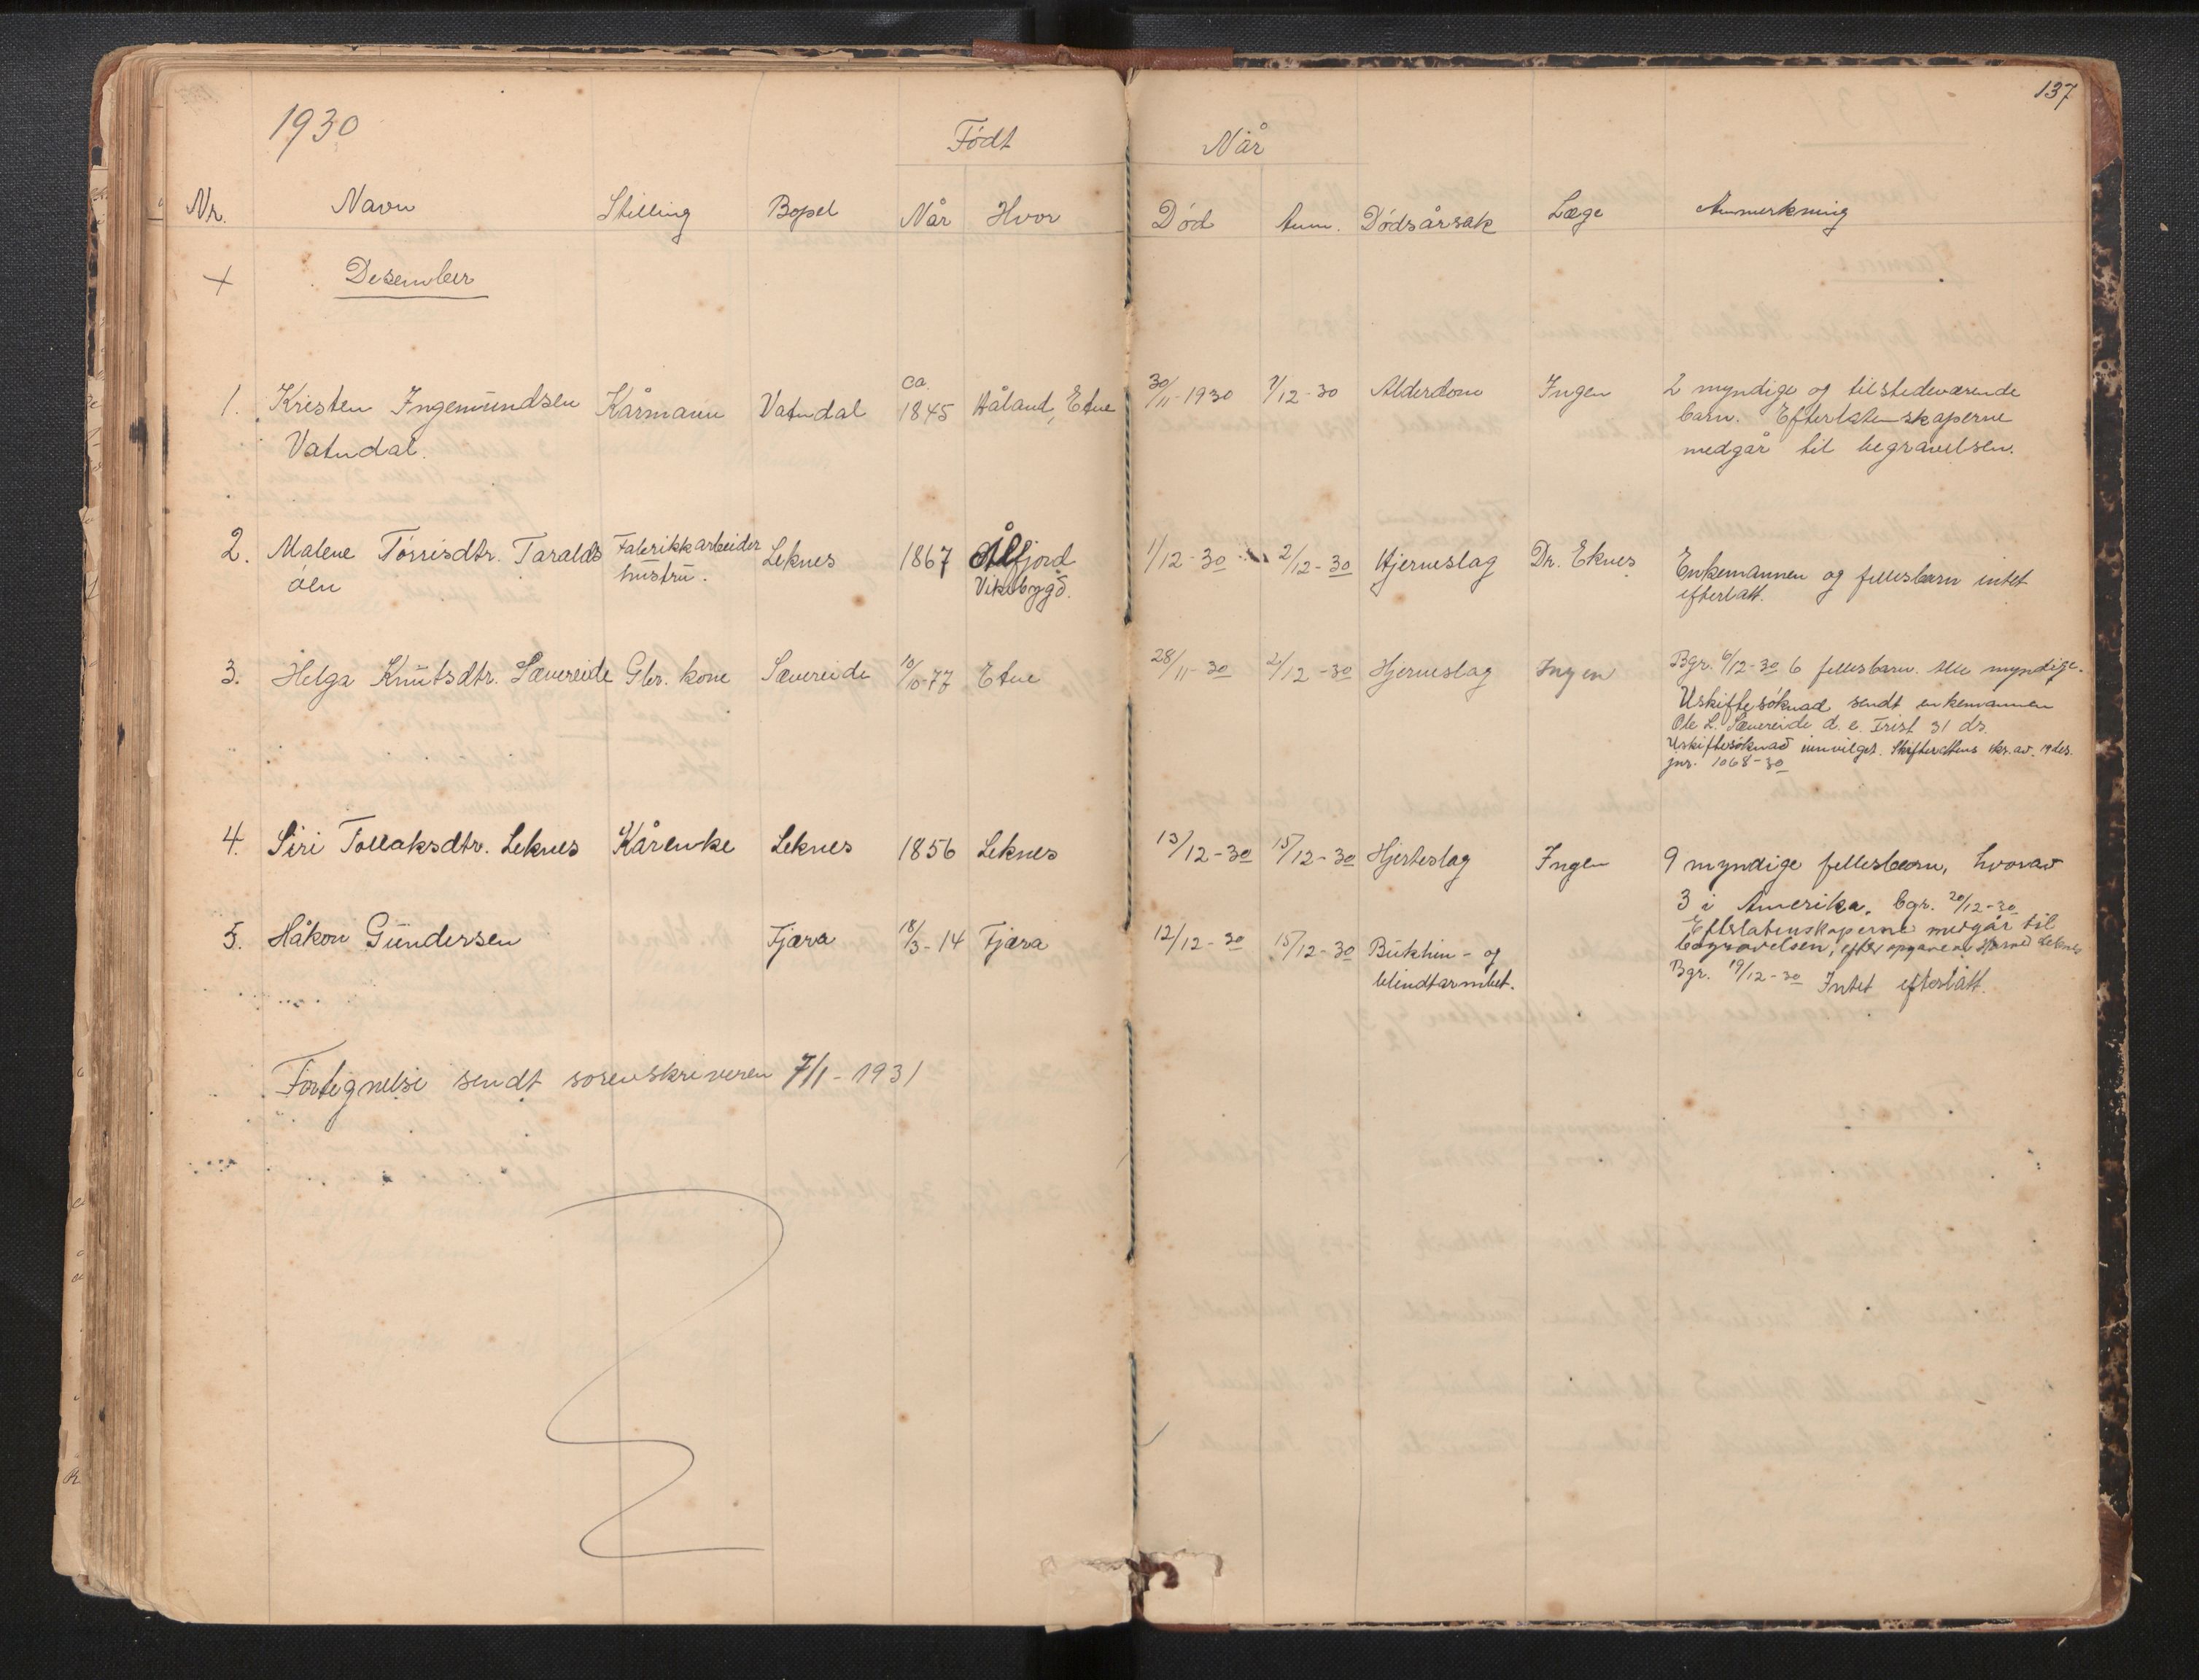 137
1930
Født
Når
Nr. Navn Stilling Bopel Når Hvor Død Anm. Dødsårsak Læge Anmerkning
+ Desember
1. Kristen Ingemundsen Kårmann Vatndal ca. 1845 Håland, Etne 30/11-1930 1/12-30 Alderdom Ingen 2 myndige og tilstedeværende
Vatndal. barn. Efterlatenskaperne
medgår til begravelsen.
2. Malene Torrisdtr. Taralds Fabrikkarbeider Leknes 1867 Ålfjord 1/12-30 2/12-30 Hjerneslag Dr. Eknes Enkemannen og fellesbarn intet
ølen hustru. Vikebygd. efterlatt.
3. Helga Knutsdtr. Sævereide Gbr. kone Sævereide 10/10-77 Etne 28/11-30 2/12-30 Hjerneslag Ingen Bgr. 6/12-30 6 fellesbarn. Alle myndige.
Uskiftesøknad sendt enkemannen
Ole L. Sævereide d. e. Frist 31 ds.
Uskiftesøknad innvilget. Skifterettens skr. av. 19 des.
jnr. 1068-30
4. Siri Tollaksdtr. Leknes Kårenke Leknes 1856 Leknes 13/12-30 15/12-30 Hjerteslag Ingen 9 myndige fellesbarn, hvorav
3 i Amerika. bgr. 20/12-30
Efterlatenskaperne medgår til
begravelsen, efter opgave av Leknes
5. Håkon Gundersen Fjæra 18/3-14 Fjæra 12/12-30 15/12-30 Bukhin- og Bgr. 19/12-30 Intet efterlatt.
blindtarmbet.
Fortegnelse sendt sorenskriveren 7/1-1931